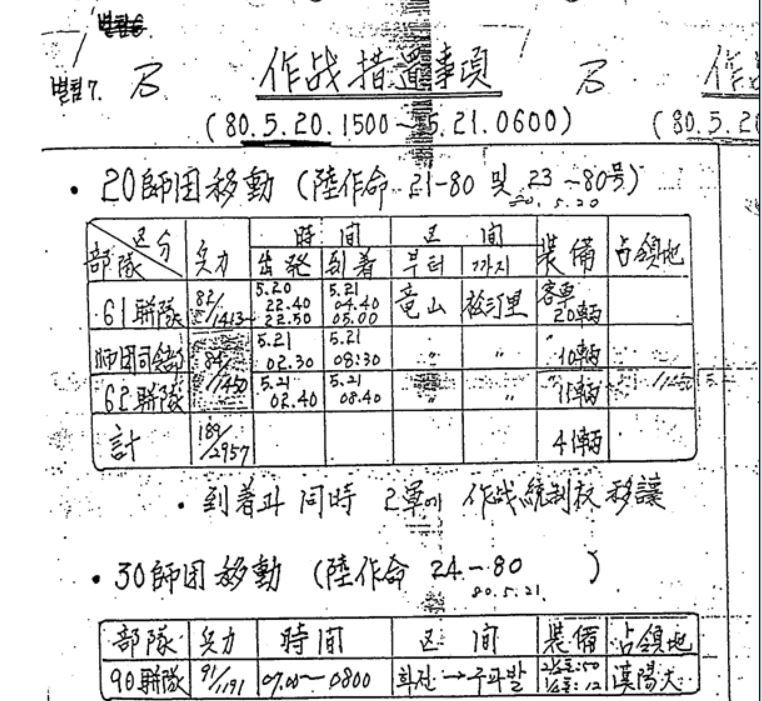 별첨6.
별첨7. B 作战措置事項 B 作
(80.5.20.1500~5.21.0600) (80.5.2
• 20師団移動 (陸作命 21-80 및 23-80号)
80.5.20
区分 部隊 兵力 時間 区間 装備 占領地
出発 到着 부터 까지
61聯隊 82/1413 5.20 22.40 22.50 5.21 04.40 05.00 竜山 松汀里 客車 20輌
師団司令部 5.21 02.30 5.21 08:30 〃 〃 10輌
62聯隊 5.21 02.40 5.21 08.40 〃 〃
計 189/2957 41輌
• 到着과 同時 2軍에 作战統制权 移讓
• 30師団移動 (陸作命 24-80 )
80.5.21.
部隊 兵力 時間 区間 装備 占領地
90聯隊 91/1191 07.00~0800 화전→구파발 漢陽大